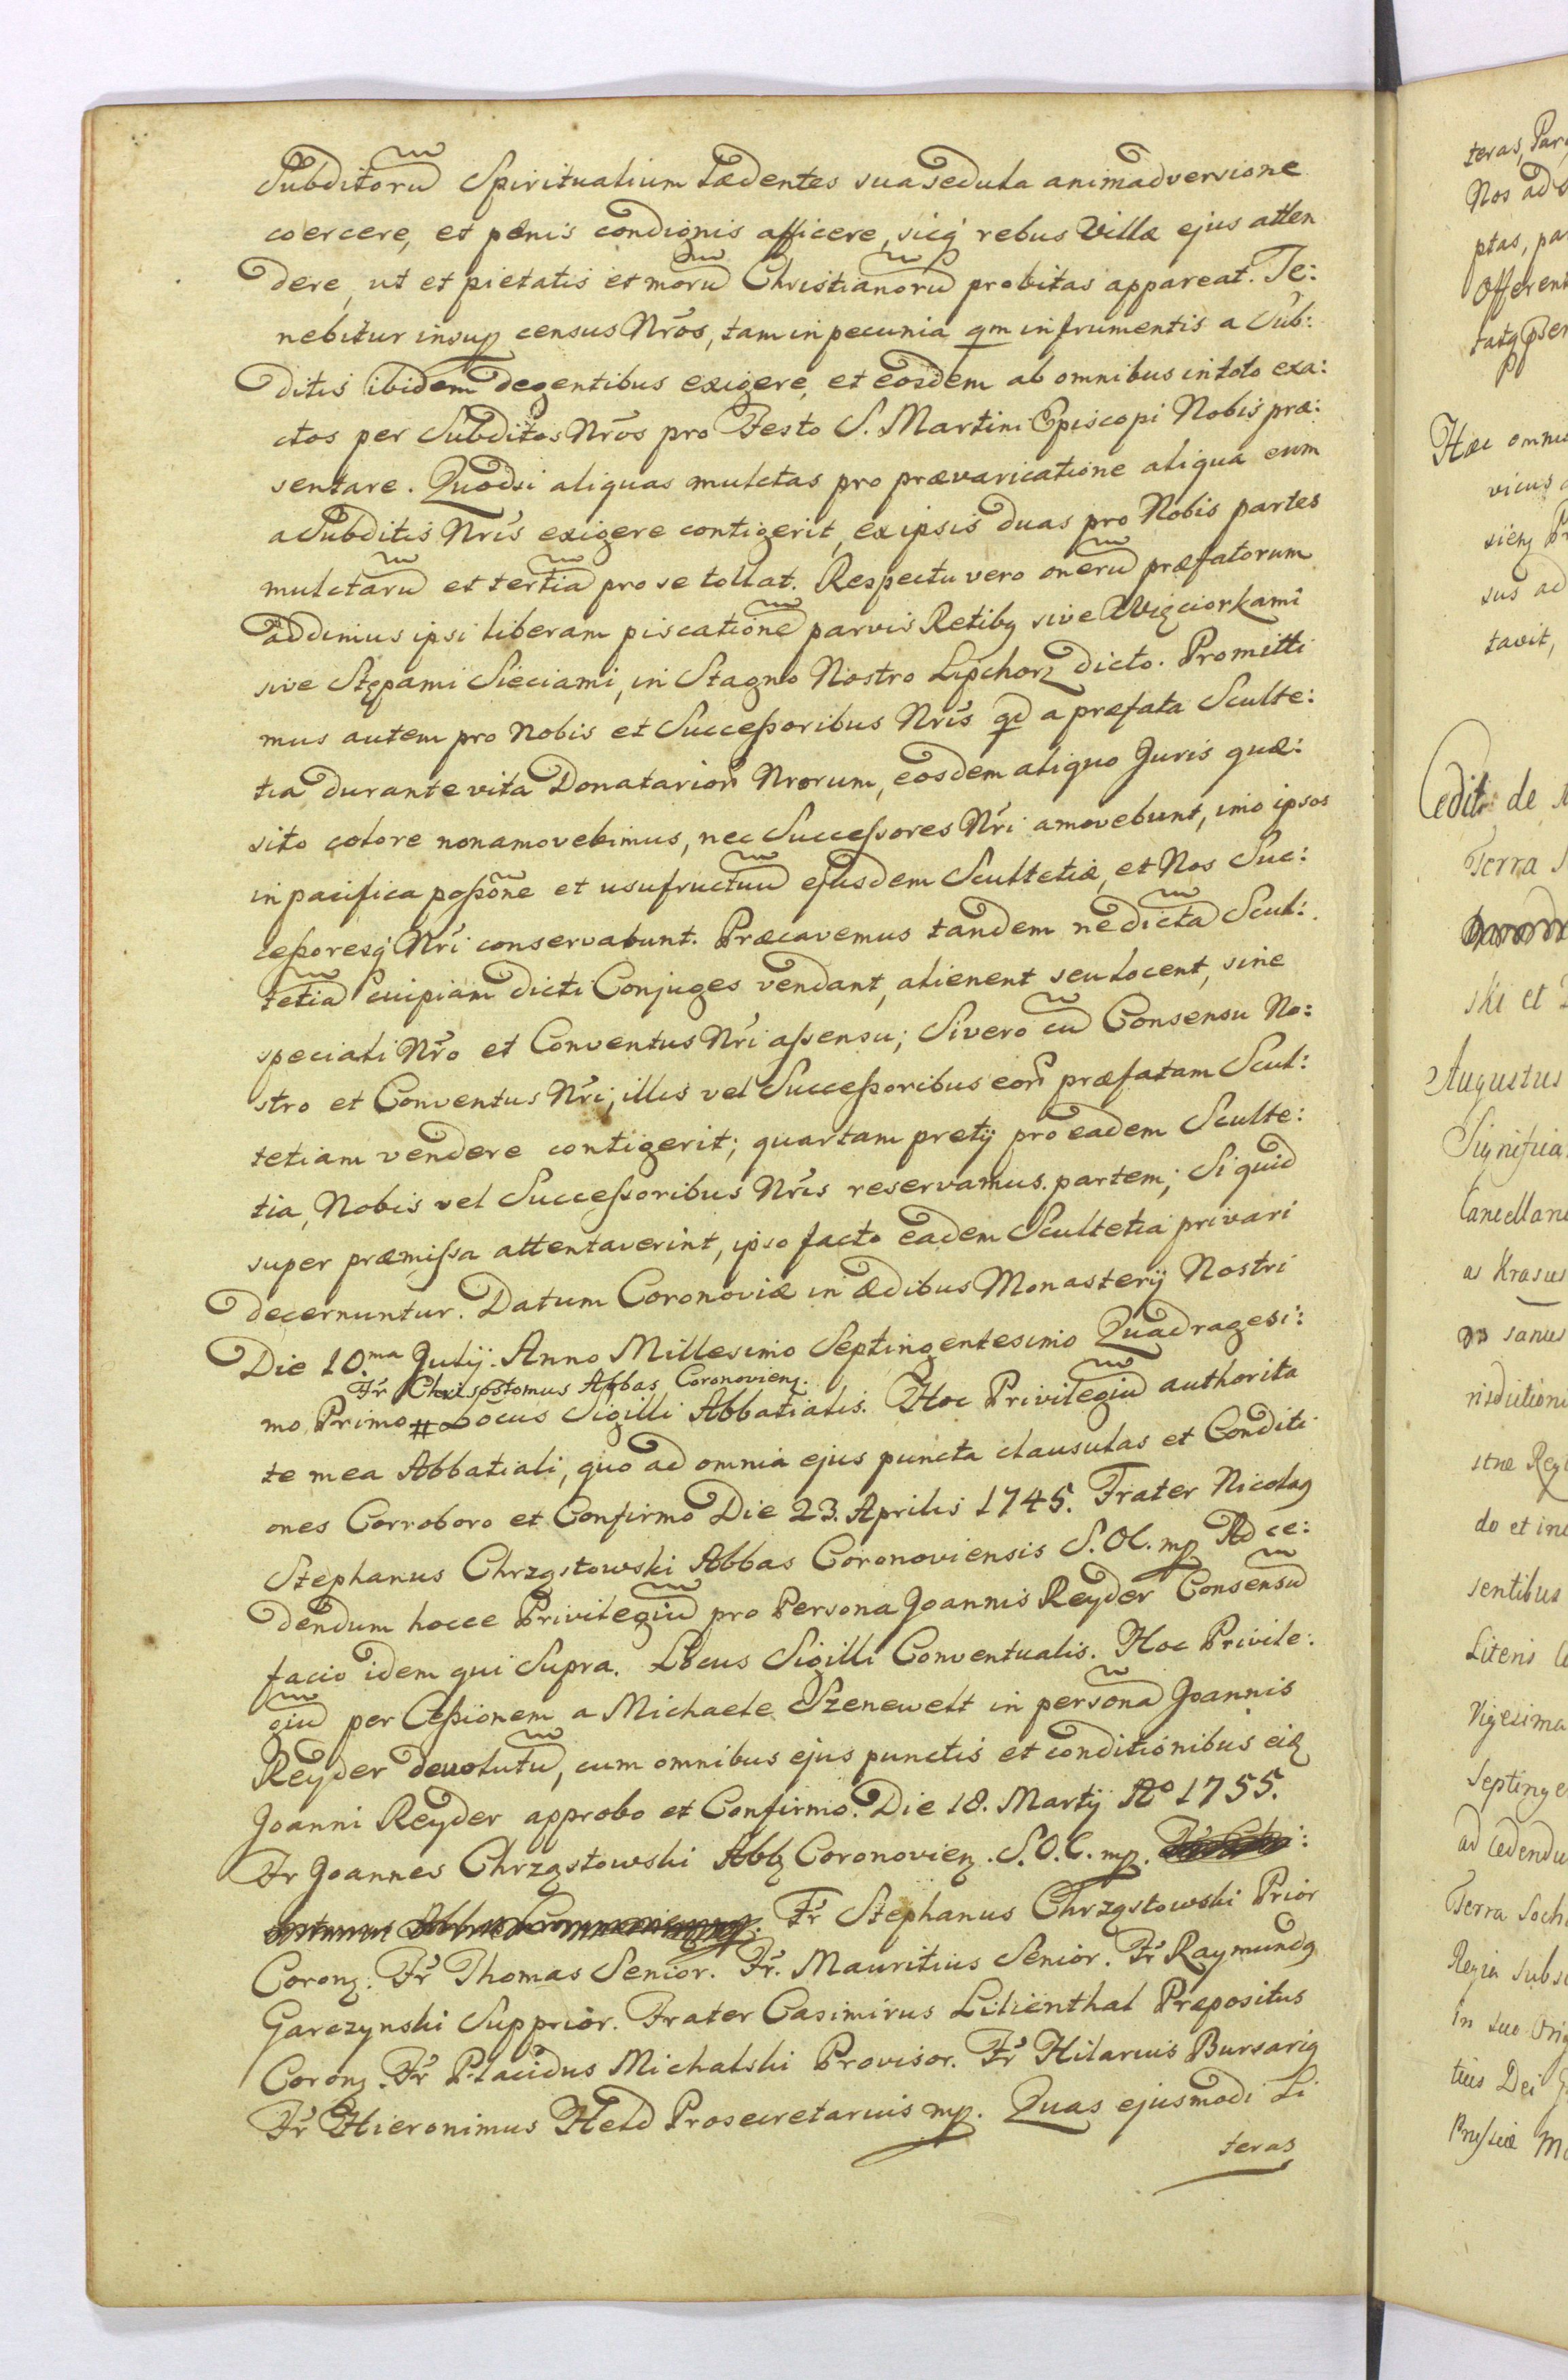 Subditorũ Spiritualium lædentes sua sedula animadversione
coercere, et pœnis condignis afficere, sicq́ rebus Villæ ejus atten
dere, ut et pietatis et morũ Christianorũ probitas appareat. Te:
nebitur insup census Nr̃os, tam in pecunia qm in frumentis a Sub:
ditis ibidem degentibus exigere, et eosdem ab omnibus in toto exa:
ctos per Subditos Nr̃os pro Festo S. Martini Episcopi Nobis præ:
sentare. Quodsi aliquas mulctas pro prævaricatione aliqua eum
a Subditis Nr̃is exigere contigerit, ex ipsis duas pro Nobis partes
mulctarũ et tertiã pro se tollat. Respectu vero onerũ præfatorum
addimus ipsi liberam piscationẽ parvis Retibq sive Więciorkami
sive Stępami Sieciami, in Stagno Nostro Lipchorz dicto. Promitti
mus autem pro Nobis et Successoribus Nr̃is qd a præfata Sculte:
tia durante vita Donatarior̃ Nrorum, eosdem aliquo Juris quæ:
sito colore non amovebimus, nec Successores Nr̃i amovebunt, imo ipsos
in pacifica poßõne et usufructuũ ejusdem Scultetiæ, et Nos Suc:
ceßoresq́ Nr̃i conservabunt. Præcavemus tandem ne dictã Scul:
tetiã cuipiam dicti Conjuges vendant, alienent seu locent, sine
speciali Nr̃o et Conventus Nr̃i assensu; Si vero cũ Consensu No:
stro et Conventus Nr̃i, illis vel Succeßoribus eor̃ præfatam Scul:
tetiam vendere contigerit; quartam pretij pro eadem Sculte:
tia, Nobis vel Successoribus Nr̃is reservamus partem; Si quid
super præmissa attentaverint, ipso facto eadem Scultetia privari
decernuntur. Datum Coronoviæ in Ædibus Monasterij Nostri
Die 10.ma Julij. Anno Millesimo Septingentesimo Quadragesi:
Fr Chrisostomus Abbas Coronovienę.
mo Primo # Locus Sigilli Abbatialis. Hoc Privilegiũ authorita
te mea Abbatiali, quo ad omnia ejus puncta clausulas et Conditi
ones Corroboro et Confirmo Die 23. Aprilis 1745. Frater Nicolaq
Stephanus Chrząstowski Abbas Coronoviensis S. O C. mp Ad ce:
dendum hocce Privilegiũ pro Persona Joannis Reyder Consensũ
facio idem qui Supra. Locus Sigilli Conventualis. Hoc Privile:
giũ per Ceßionem a Michaele Szenewelt in personã Joannis
Reyder devolutũ, cum omnibus ejus punctis et conditionibus eid
Joanni Reyder approbo et Confirmo. Die 18. Martij Ao 1755.
Fr Joannes Chrząstowski Abb Coronovien. S. O. C. mp.
Fr Stephanus Chrząstowski Prior
Coron. Fr Thomas Senior. Fr. Mauritius Senior. Fr Raymundq
Garczynski Supprior. Frater Casimirus Lilienthal Præpositus
Coron. Fr Placidus Michalski Provisor. Fr Hilarius Bursariq
Fr Hieronimus Held Prosecretarius mp. Quas ejusmodi Li
teras
teras, Par
Nos ad
ptas, pa
Offerent
Hæc omni
vicus
sus ad
tavit,
de
Terra
ski et
Augustus
Significa
Cancellari
as Krasus
sentibus
Literis
Vigesima
Septinge
ad cedendu
Terra Soch
Regia subs
in suo Orig
tius Dei G
Prussiæ